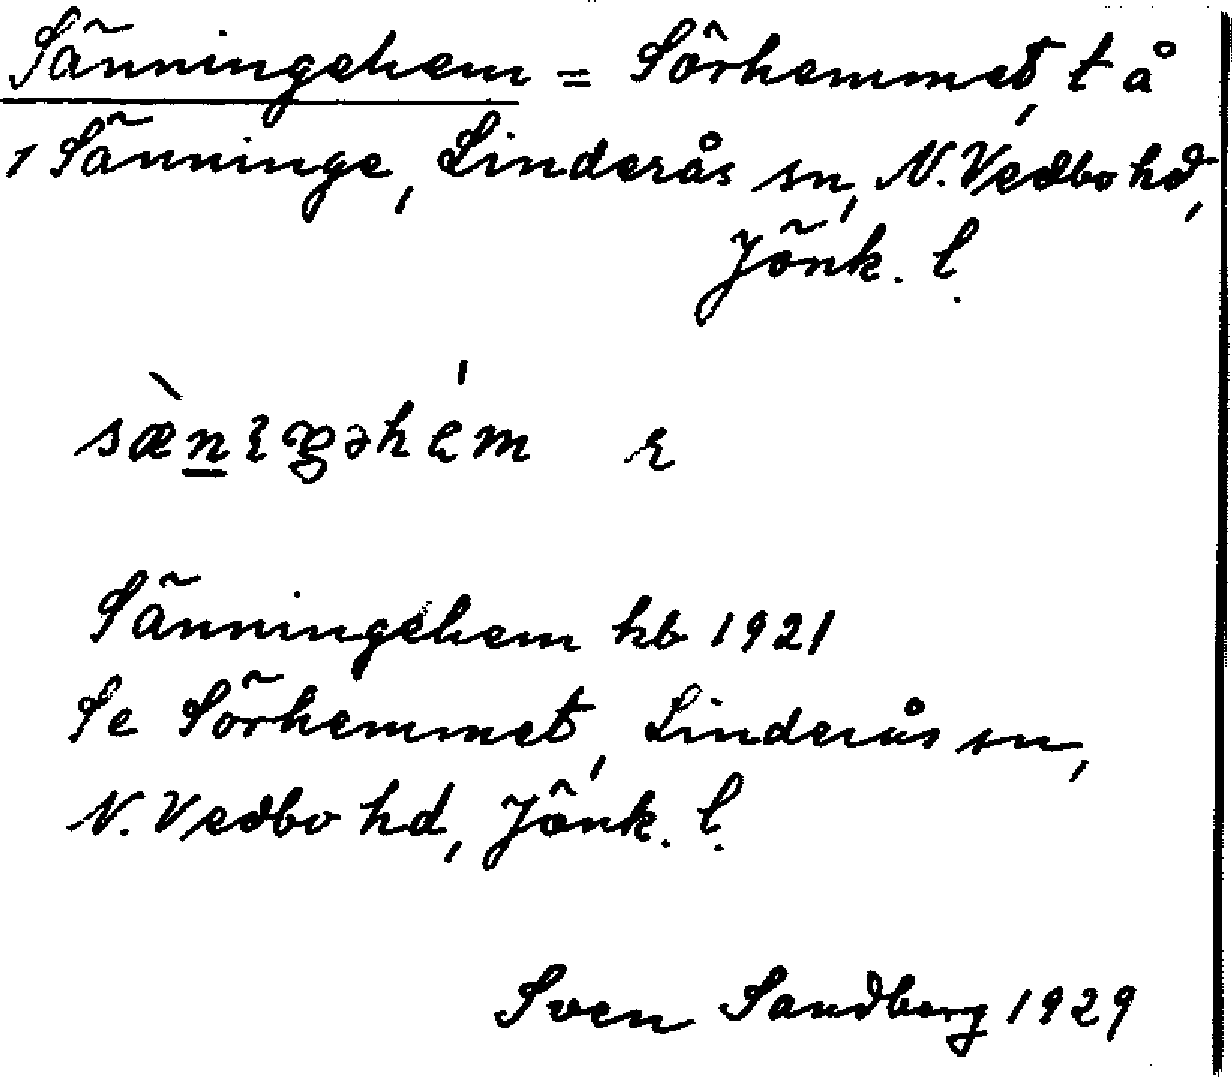 Sänningehem = Sörhemmet, t å
1 Sänninge, Linderås sn, N. Vedbo hd,
Jönk. l.
Sänningehem hb 1921
Se Sörhemmet, Linderås sn,
N. Vedbo hd, Jönk. l.
Sven Sandberg 1929